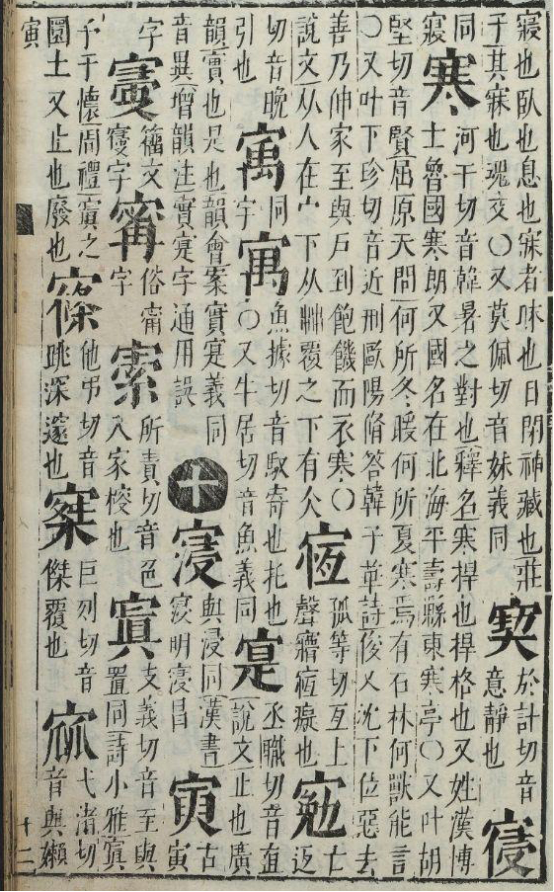 寢也臥也息也寐者昧也目閉神藏也莊
子其寐也魂交〇又莫佩切音妹義同
於計切音
意靜也
同
寢
寒
河干切音韓暑之對也釋名寒捍也捍格也又姓漢博
士魯國寒朗又國名在北海平壽縣東寒亭〇又叶胡
堅切音賢屈原天問何所冬暖何所夏寒焉有石林何獸能言
〇又叶下珍切音近刑歐陽脩答韓子華詩俊又沈下位惡去
善乃伸家至與戶到飽饑而衣寒〇
說文从人在宀下从茻覆之下有仌
孤等切亙上
聲 癡也
亡
返
切音晚
引也
寓
同
字
寓
魚據切音馭寄也托也
〇又牛居切音魚義同
寔
丞職切音直
說文止也廣
韻實也是也韻會案實寔義同
音異增韻注實寔字通用誤
十
寖
與浸同漢書
寖明寖昌
寅
古
寅
字
籀文
字
寗
俗甯
字
所責切音色
入家搜也
寘
支義切音至與
置同詩小雅寘
予于懷周禮寘之
圜土又止也廢也
他弔切音
眺深邃也
巨列切音
傑覆也
弋渚切
音與嬾
寅
十二